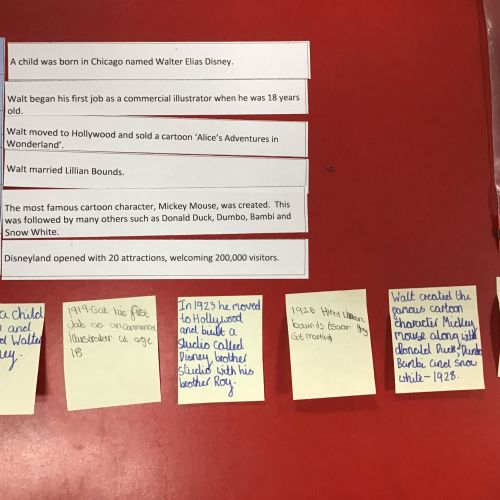 A child was born in Chicago named Walter Elias Disney.
Walt began his first job as a commercial illustrator when he was 18 years
old.
Walt moved to Hollywood and sold a cartoon 'Alice's Adventures in
Wonderland'.
Walt married Lillian Bounds.
The most famous cartoon character, Mickey Mouse, was created. This
was followed by many others such as Donald Duck, Dumbo, Bambi and
Snow White.
Disneyland opened with 20 attractions, welcoming 200,000 visitors.
a child
and
Walter
ey.
1919-Got his first
Job as
Illustrator at age
18
In 1923 he moved
to Hollywood
and built a
studio called
Disney brother
studio with his
brother Roy.
Hired Lillian
bounds (soon they
Got married)
Walt created the
famous cartoon
character Mickey
mouse along with
donald Duck, Dumbo
Bambi and snow
white-1928.